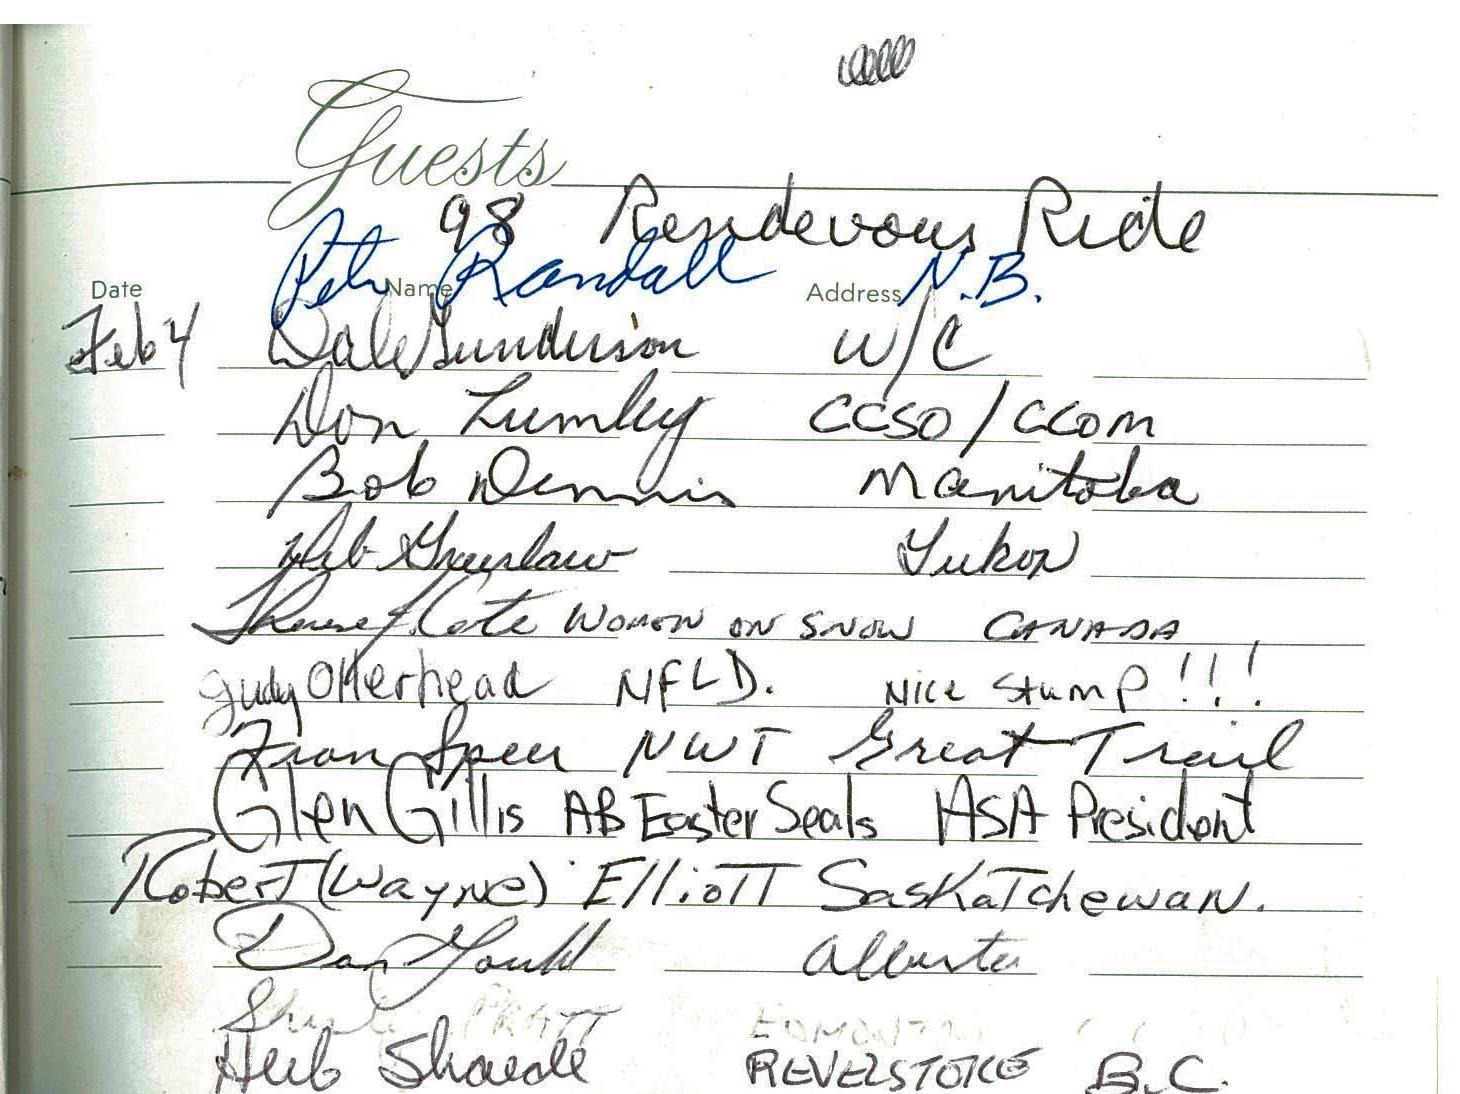 Guests
98 Rendevous Ride
Peter Randall N.B.
Date Name Address
Feb 4 Dale Gunderson W/C
Don Lumley CCSO/CCOM
Bob Dennis Manitoba
Deb Greenlaw Yukon
Cote WOMEN ON SNOW CANADA
Judy Otterhead NFLD. Nice Stump!!!
Fran Speer NWT Great Trail
Glen Gillis AB Easter Seals ASA President
Robert (Wayne) Elliott Saskatchewan.
Dan Gould Alberta
PRATT EDMONTON
Herb REVELSTOKE B.C.